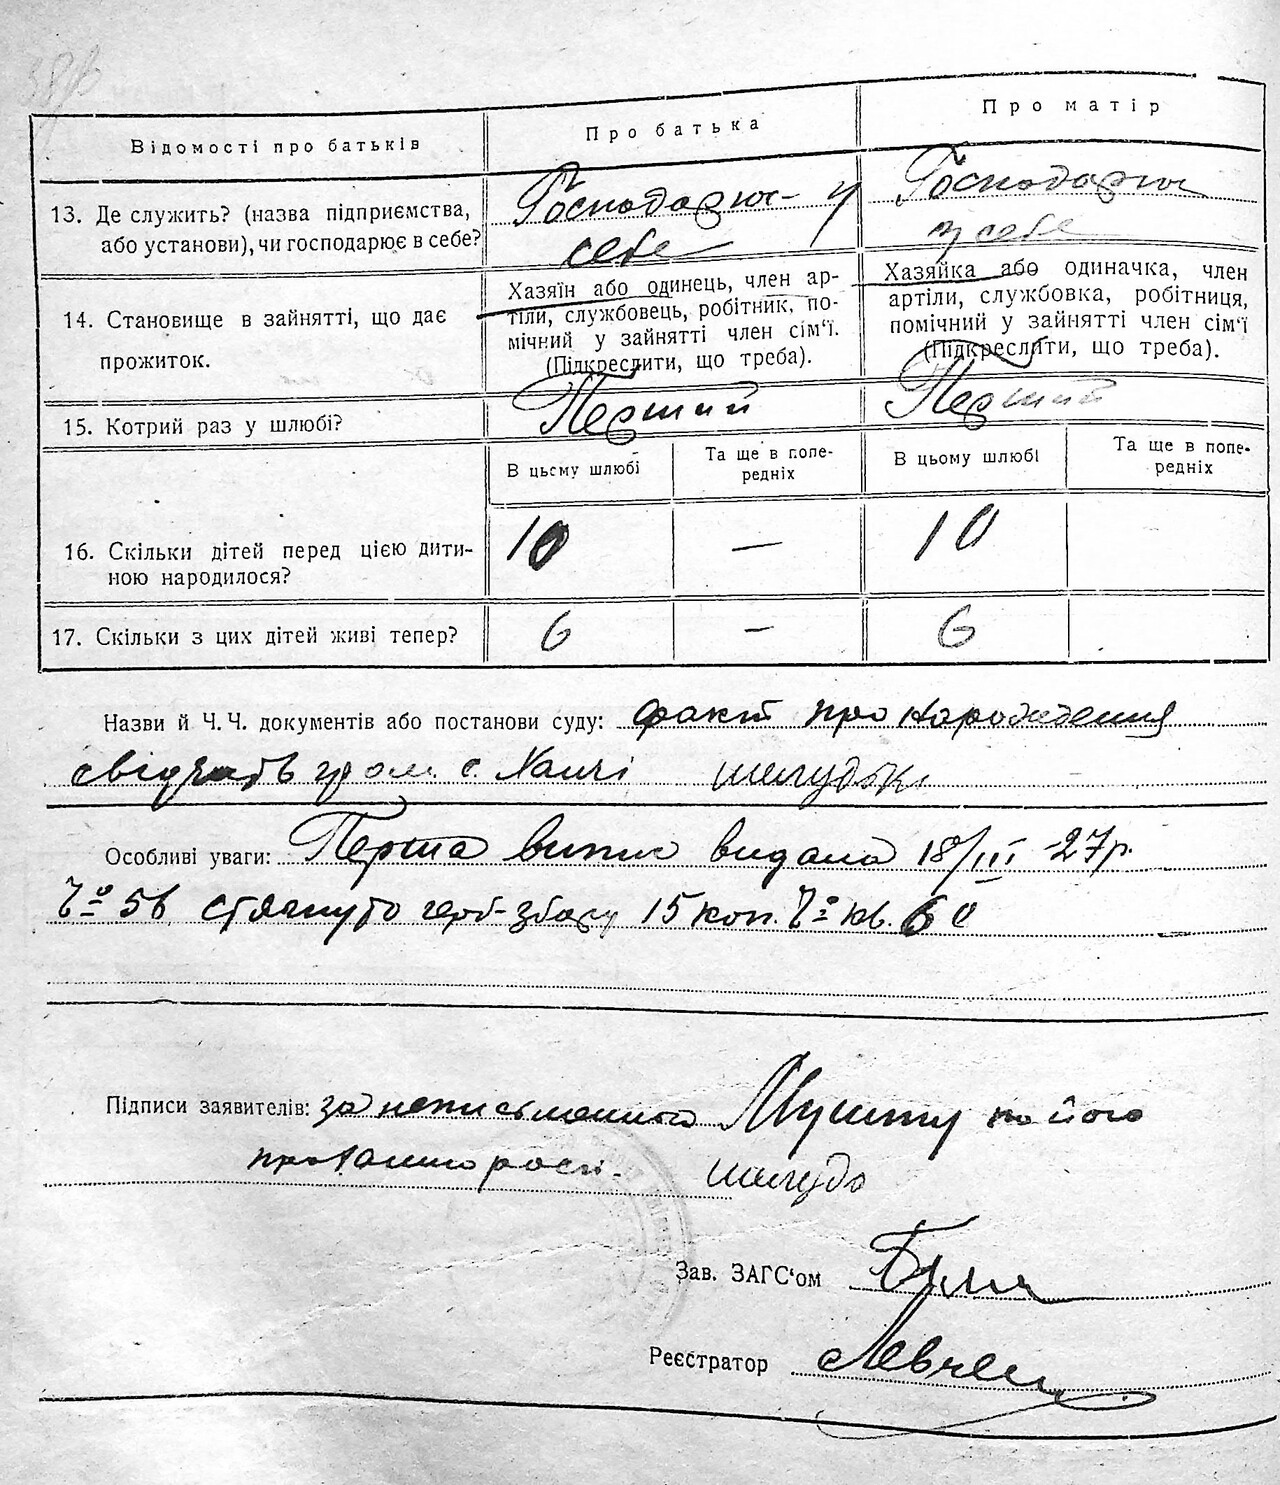 Відомості про батьків
Про батька
Про матір
13. Де служить? (назва підприємства,
або установи), чи господарює в себе?
Господарює у
себе
Господарює
у себе
14. Становище в зайнятті, що дає
прожиток.
Хазяїн або одинець, член ар-
тіли, службовець, робітник, по-
мічний у зайнятті член сім'ї.
(Підкреслити, що треба).
Хазяйка або одиначка, член
артіли, службовка, робітниця,
помічний у зайнятті член сім'ї
(Підкреслити, що треба).
15. Котрий раз у шлюбі?
Перший
Перший
В цьому шлюбі
Та ще в попе-
редніх
В цьому шлюбі
Та ще в попе-
редніх
16. Скільки дітей перед цією дити-
ною народилося?
10
—
10
17. Скільки з цих дітей живі тепер?
6
—
6
Назви й Ч.Ч. документів або постанови суду: факт про народження
свідчать гром. с.
Особливі уваги: Перша випис видана 18/III-27р.
Ч° 56 стягнуто герб-збору 15 коп. Ч° кв. 60
Підписи заявителів: за неписьменного Мушту по його
проханню розп.
Зав. ЗАГС'ом
Реєстратор